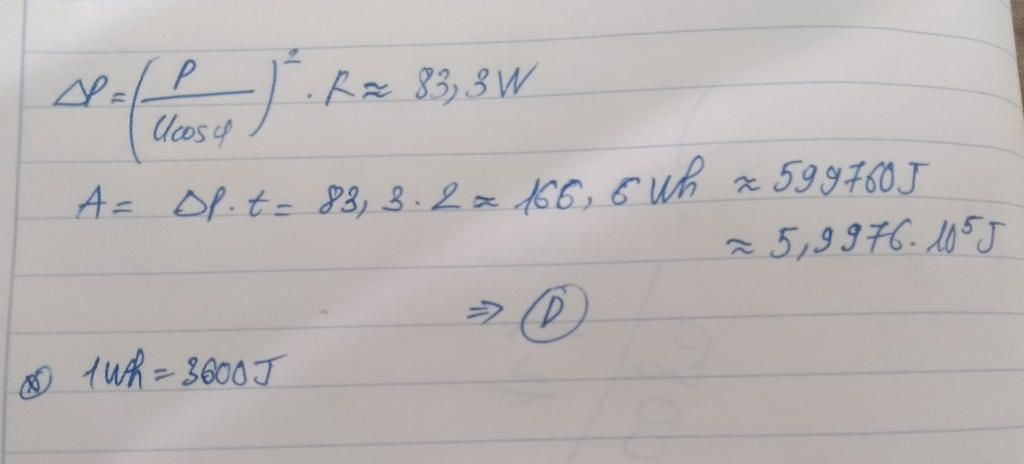 ΔP = (P / Ucosφ)² . R ≈ 83,3W
A = ΔP.t = 83,3.2 ≈ 166,6 Wh ≈ 599760J
≈ 5,9976.10⁵J
⇒ D
1Wh = 3600J